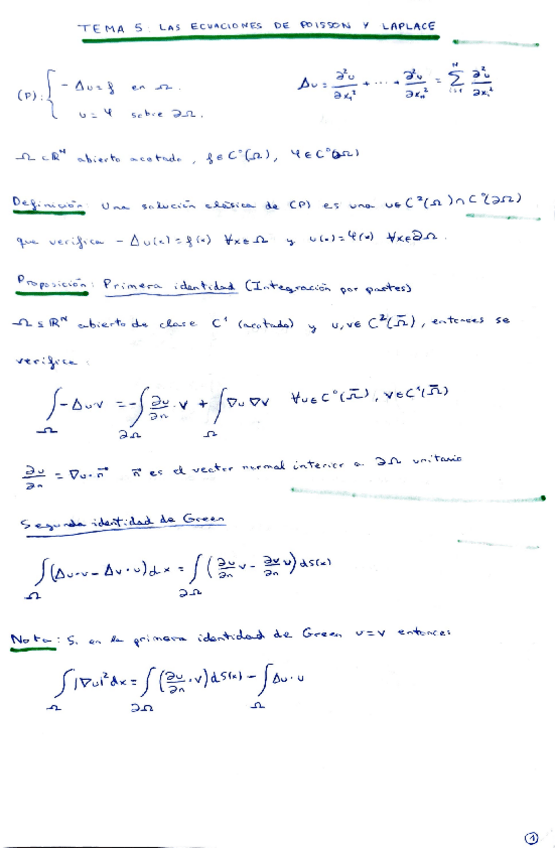 TEMA 5: LAS ECUACIONES DE POISSON Y LAPLACE
(P): { -Δu = f en Ω. Δu = ∂²u/∂x₁² + ... + ∂²u/∂xₙ² = Σᵢ₌₁ᴺ ∂²u/∂xᵢ²
u = φ sobre ∂Ω.
Ω⊂ℝᴺ abierto acotado, f∈C⁰(Ω), φ∈C⁰(∂Ω)
Definición: Una solución clásica de (P) es una u∈C²(Ω)∩C⁰(∂Ω)
que verifica -Δu(x)=f(x) ∀x∈Ω y u(x)=φ(x) ∀x∈∂Ω.
Proposición: Primera identidad (Integración por partes)
Ω⊆ℝᴺ abierto de clase C¹ (acotado) y u,v∈C²(Ω̄), entonces se
verifica:
∫_Ω -Δu v = -∫_∂Ω ∂u/∂n · v + ∫_Ω ∇u ∇v ∀u∈C²(Ω̄), v∈C¹(Ω̄)
∂u/∂n = ∇u·n⃗ n⃗ es el vector normal interior a ∂Ω unitario
Segunda identidad de Green
∫_Ω (Δu·v - Δv·u)dx = ∫_∂Ω (∂u/∂n v - ∂v/∂n u) dS(x)
Nota: Si en la primera identidad de Green u=v entonces
∫_Ω |∇u|² dx = ∫_∂Ω (∂u/∂n · v) dS(x) - ∫_Ω Δu·u
1